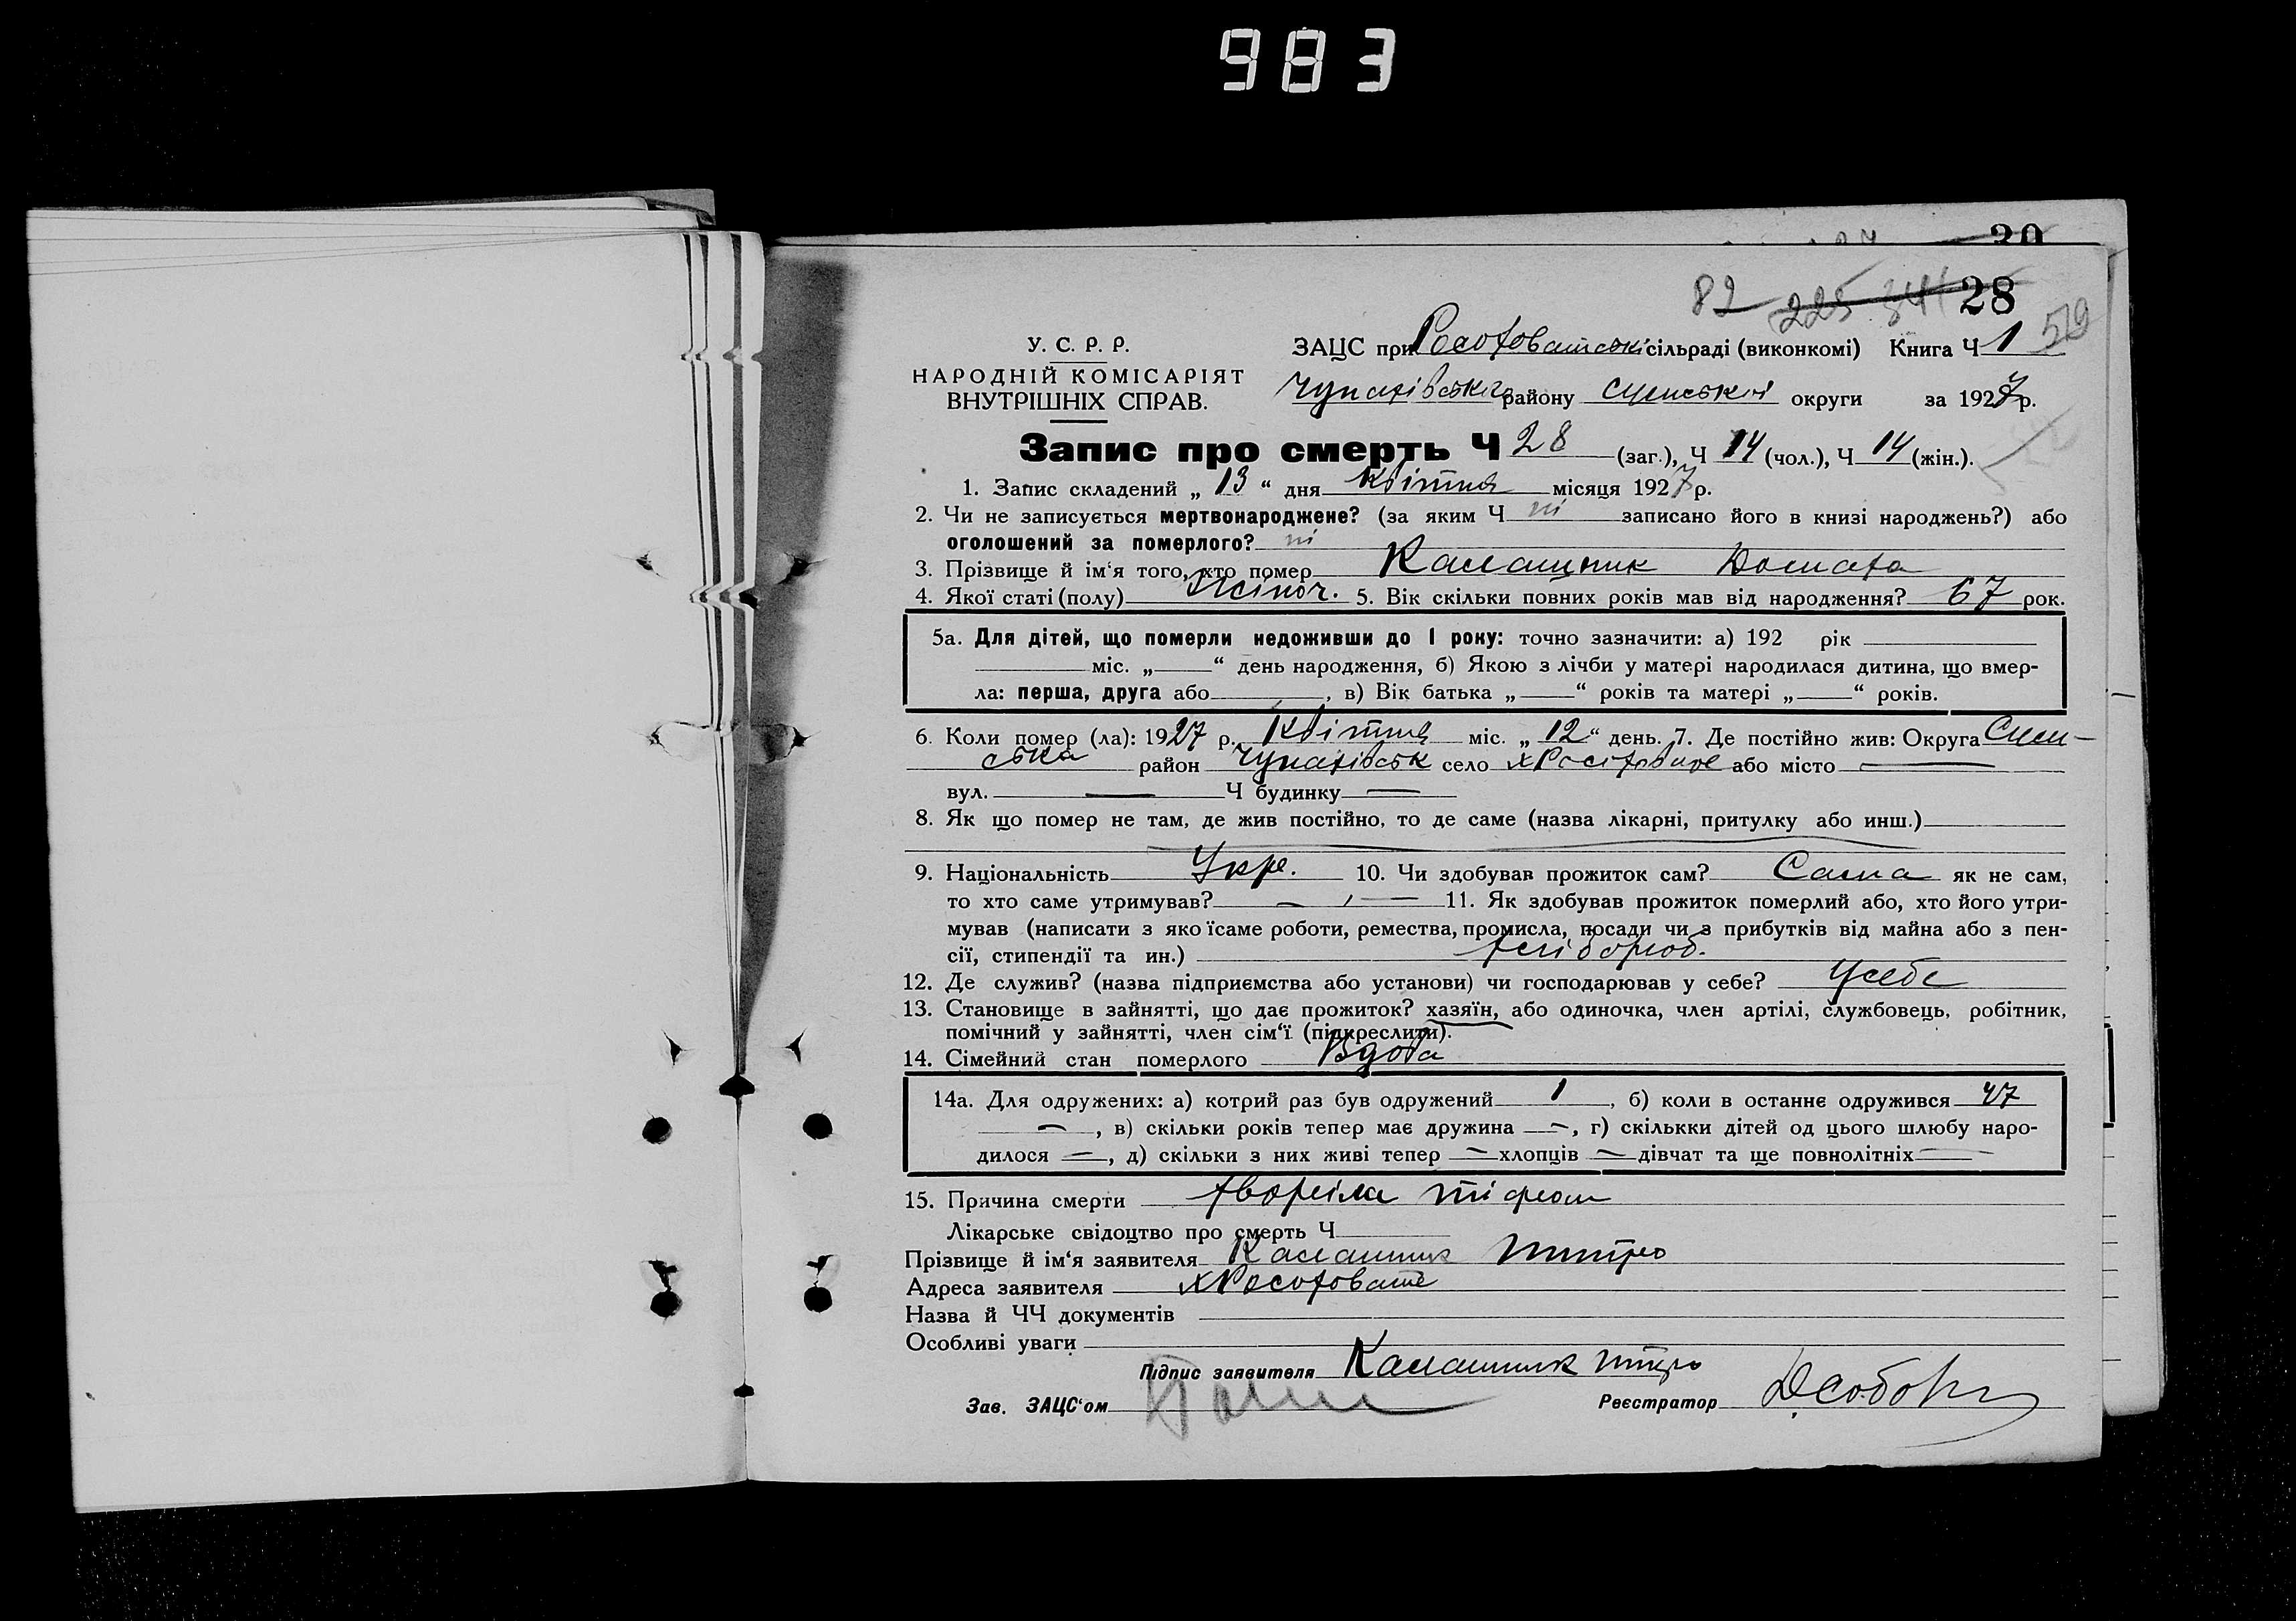 983
30
82 225 341 28
59
У. С. Р. Р.
НАРОДНІЙ КОМІСАРІЯТ
ВНУТРІШНІХ СПРАВ.
ЗАЦС при Росоховатській сільраді (виконкомі) Книга Ч 1
Чупахівськ району Сумської округи за 1927 р.
Запис про смерть Ч 28 (заг.), Ч 14 (чол.), Ч 14 (жін.).
1. Запис складений „ 13 “ дня Квітня місяця 1927 р.
2. Чи не записується мертвонароджене? (за яким Ч ні записано його в книзі народжень?) або
оголошений за померлого? ні
3. Прізвище й ім‘я того, хто помер Калашник Домаха
4. Якої статі (полу) Жіноч. 5. Вік скільки повних років мав від народження? 67 рок.
5а. Для дітей, що померли недоживши до 1 року: точно зазначити: а) 192 рік
міс. „ “ день народження, б) Якою з лічби у матері народилася дитина, що вмер-
ла: перша, друга або , в) Вік батька „ — “ років та матері „ — “ років.
6. Коли помер (ла): 1927 р. Квітня міс. „ 12 “ день. 7. Де постійно жив: Округа Сум-
ська район Чупахівськ село х Росоховате або місто —
вул. — Ч будинку —
8. Як що помер не там, де жив постійно, то де саме (назва лікарні, притулку або инш.)
9. Національність Укр. 10. Чи здобував прожиток сам? Сама як не сам,
то хто саме утримував? — 11. Як здобував прожиток померлий або, хто його утри-
мував (написати з яко їсаме роботи, ремества, промисла, посади чи з прибутків від майна або з пен-
сії, стипендії та ин.) хліборób.
12. Де служив? (назва підприємства або установи) чи господарював у себе? Усебе
13. Становище в зайнятті, що дає прожиток? хазяїн, або одиночка, член артілі, службовець, робітник,
помічний у зайнятті, член сім‘ї (підкреслити).
14. Сімейний стан померлого Вдова
14а. Для одружених: а) котрий раз був одружений 1 , б) коли в останнє одружився 47
— , в) скільки років тепер має дружина — , г) скількки дітей од цього шлюбу наро-
дилося — , д) скільки з них живі тепер — хлопців — дівчат та ще повнолітніх —
15. Причина смерти хворіла тіфом
Лікарське свідоцтво про смерть Ч
Прізвище й ім‘я заявителя Калашник Митро
Адреса заявителя х Росоховате
Назва й ЧЧ документів
Особливі уваги
Підпис заявителя Калашник Митро
Зав. ЗАЦС‘ом
Реєстратор